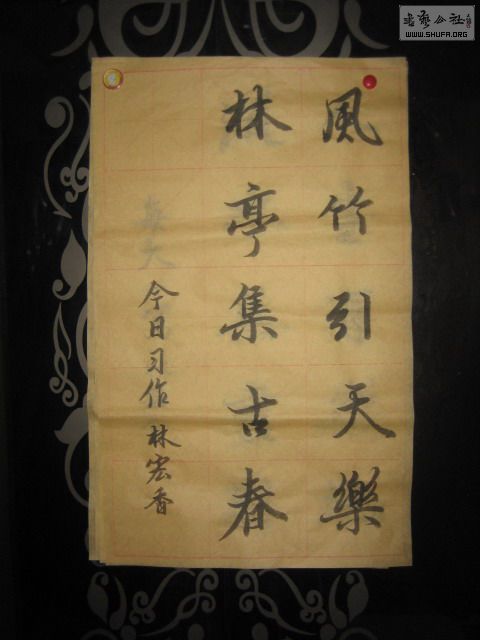 風竹引天樂
林亭集古春
今日习作 林宏香
書藝公社
WWW.SHUFA.ORG